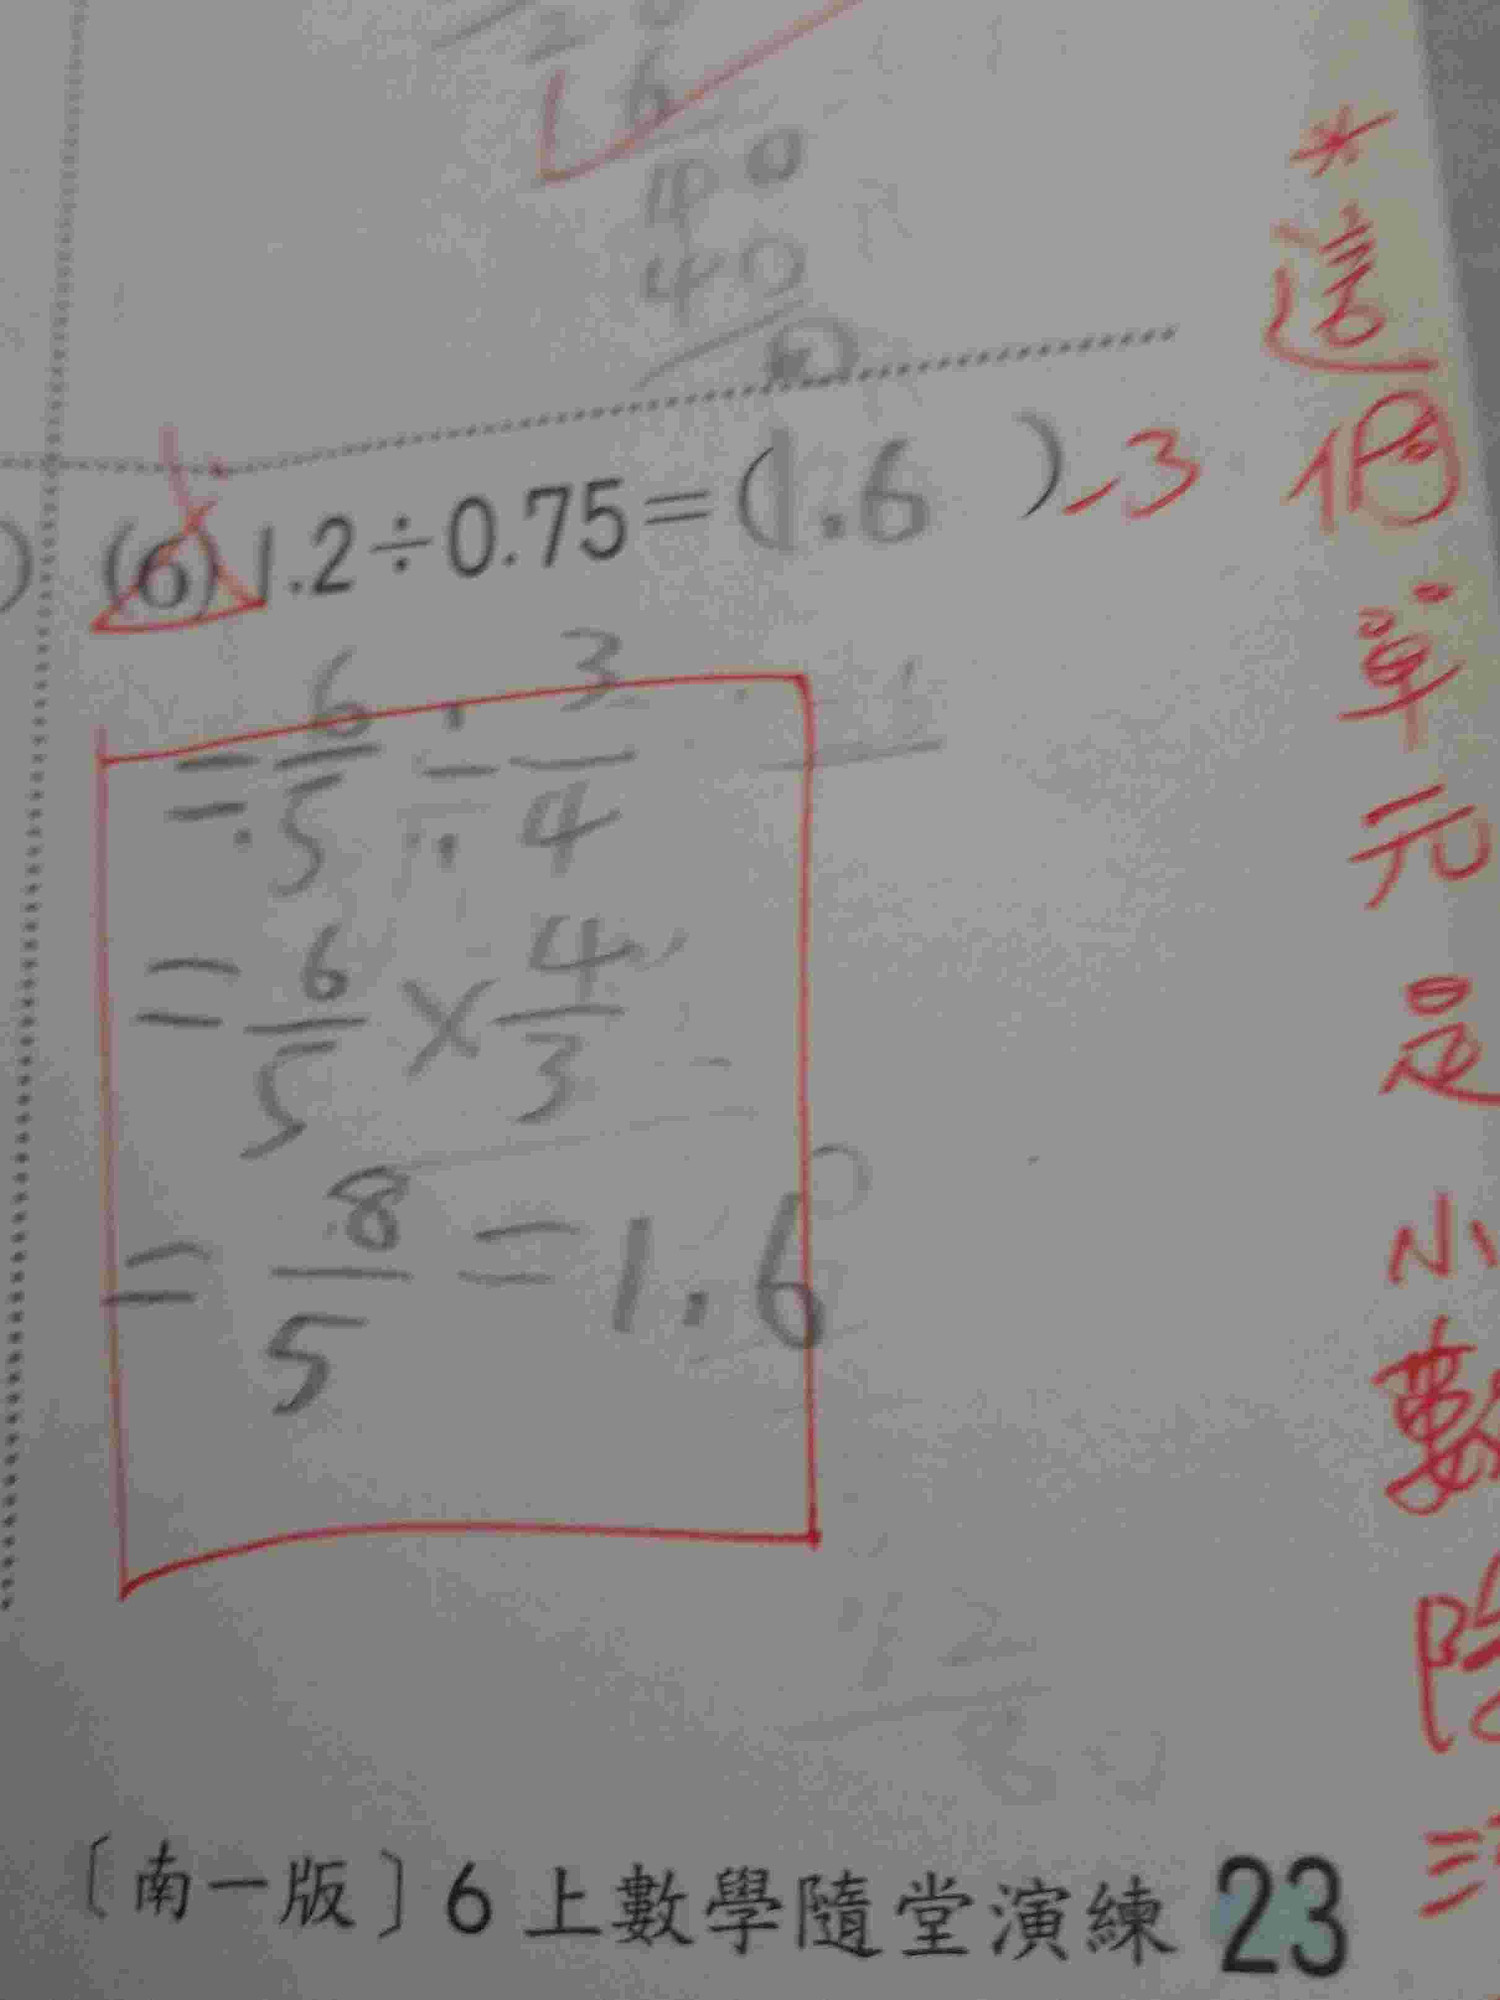 6
40
40
0
(6) 1.2÷0.75=(1.6) -3
=6/5÷3/4
=6/5×4/3
=8/5=1.6
*這個單元是小數
〔南一版〕6上數學隨堂演練 23